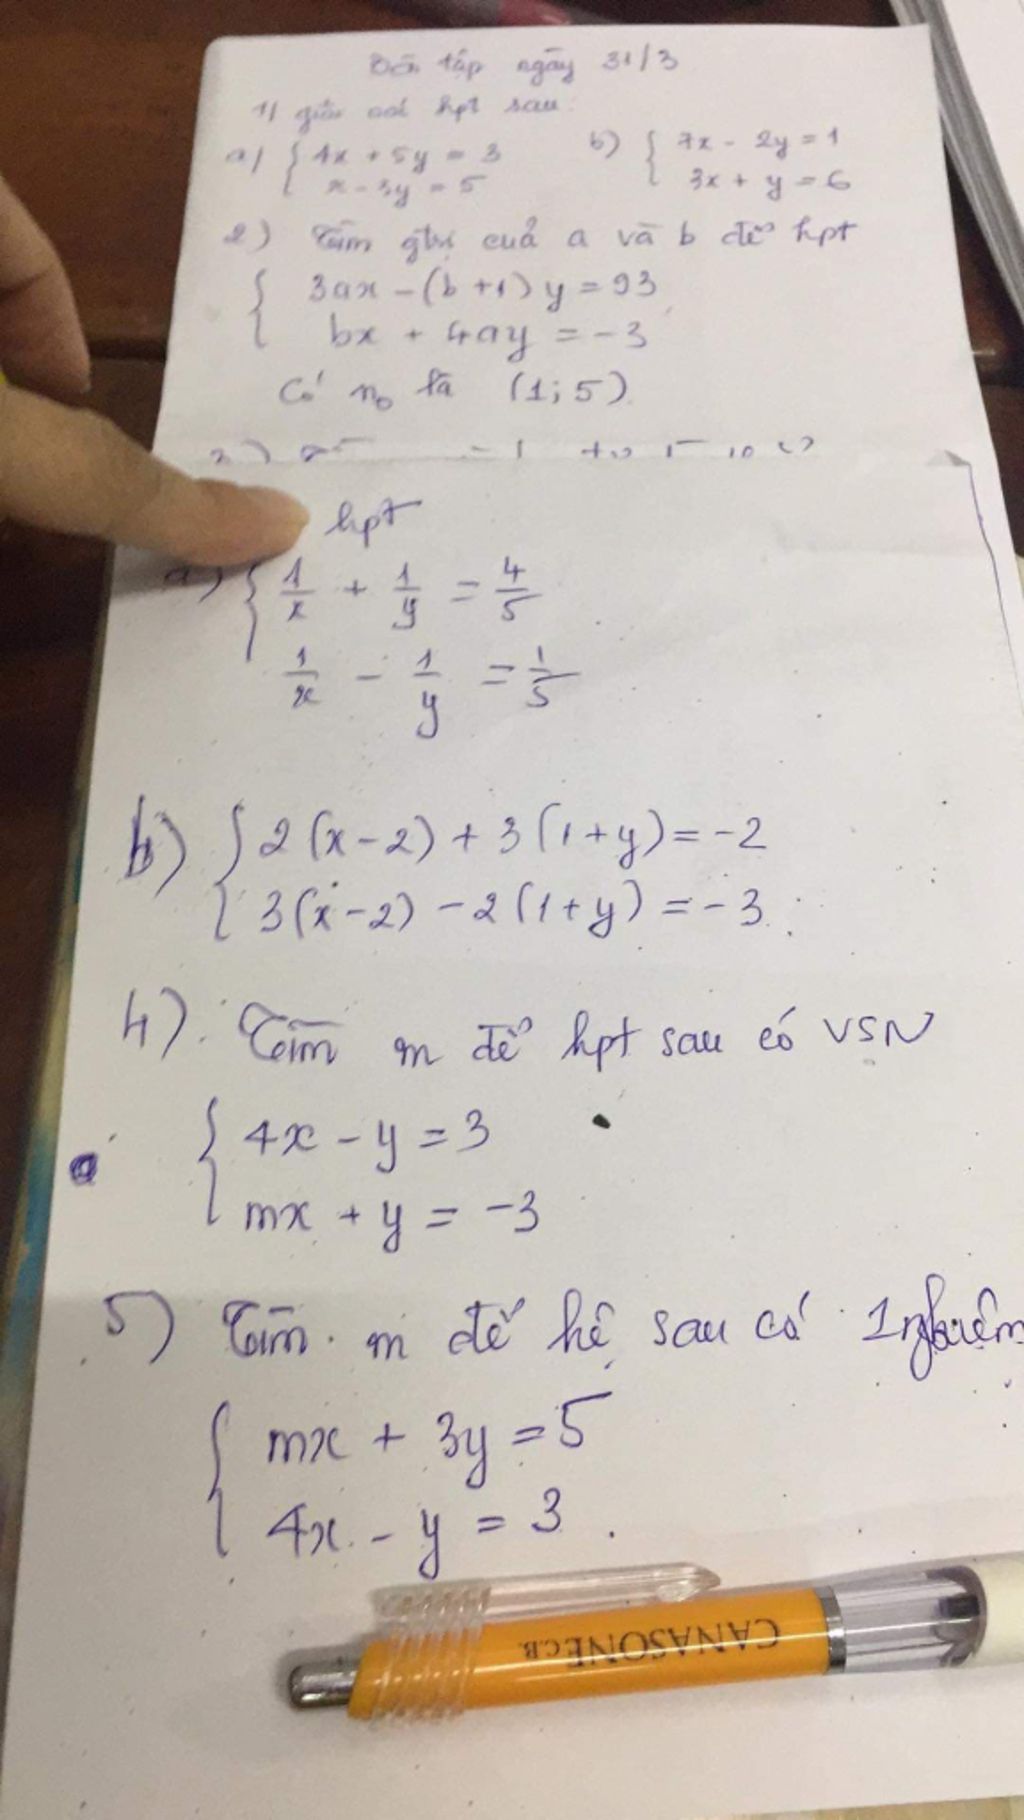 tập ngày 31/3
1) giải các hpt sau:
a) { 4x + 5y = 3
x - 3y = 5
b) { 7x - 2y = 1
3x + y = 6
2) Tìm gtrị cuả a và b để hpt
{ 3ax - (b+1)y = 93
bx + 4ay = -3
Có no là (1;5).
hpt
a) { 1/x + 1/y = 4/5
1/x - 1/y = 1/5
b) { 2(x-2) + 3(1+y) = -2
3(x-2) - 2(1+y) = -3.
4). Tìm m để hpt sau có VSN
{ 4x - y = 3
mx + y = -3
5) Tìm m để hệ sau có 1 nghiệm
{ mx + 3y = 5
4x - y = 3.
CANASONE C.B.